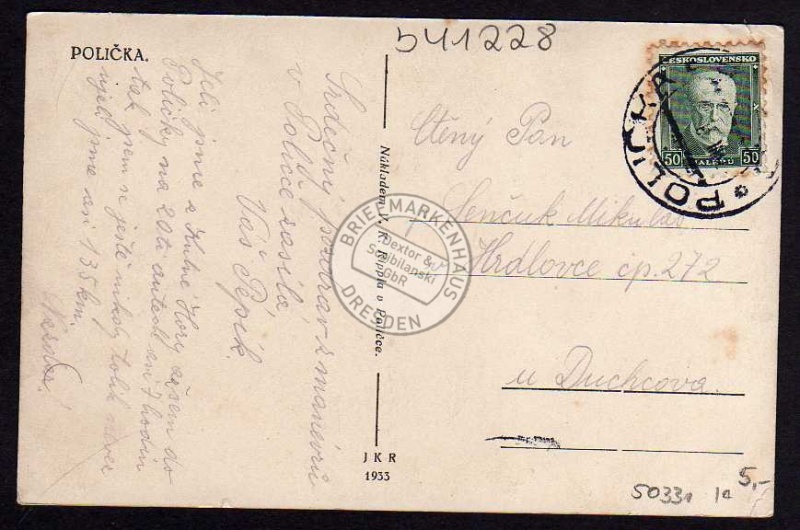 541228
POLIČKA.
Srdečný pozdrav z manévrů
v Poličce zasílá
Váš Pepík.
Jeli jsme z Kutné Hory až sem do
Poličky na 20ti autech asi 7 hodin
tak jsem se ještě nikdy tolik
jeli jsme asi 135 km.
Nazdar!
Nákladem V. K. v Poličce.
JKR
1933
ČESKOSLOVENSKO
50 HALÉŘŮ 50
POLIČKA
Ctěný Pan
Venčuk Mikuláš
Hrdlovce čp. 272
u Duchcova.
BRIEFMARKENHAUS
Dextor &
Scibilanski
GbR
DRESDEN
50331 Ia 5,-